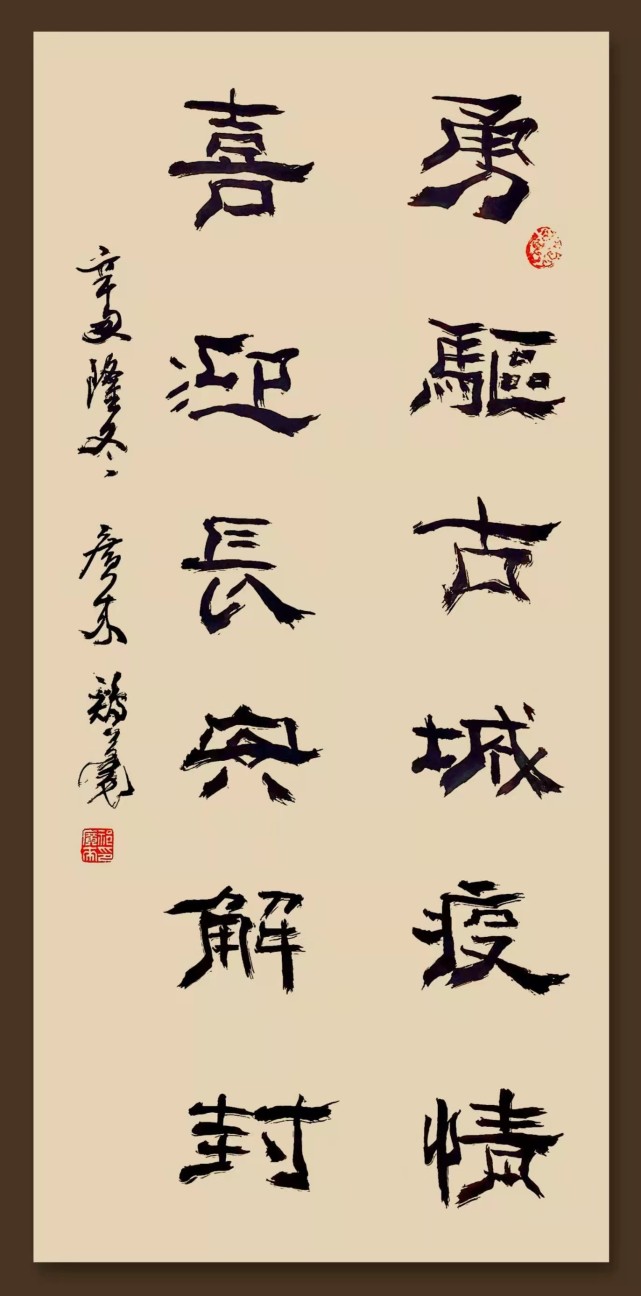 勇驅古城疫情
喜迎長安解封
辛丑隆冬 廣東